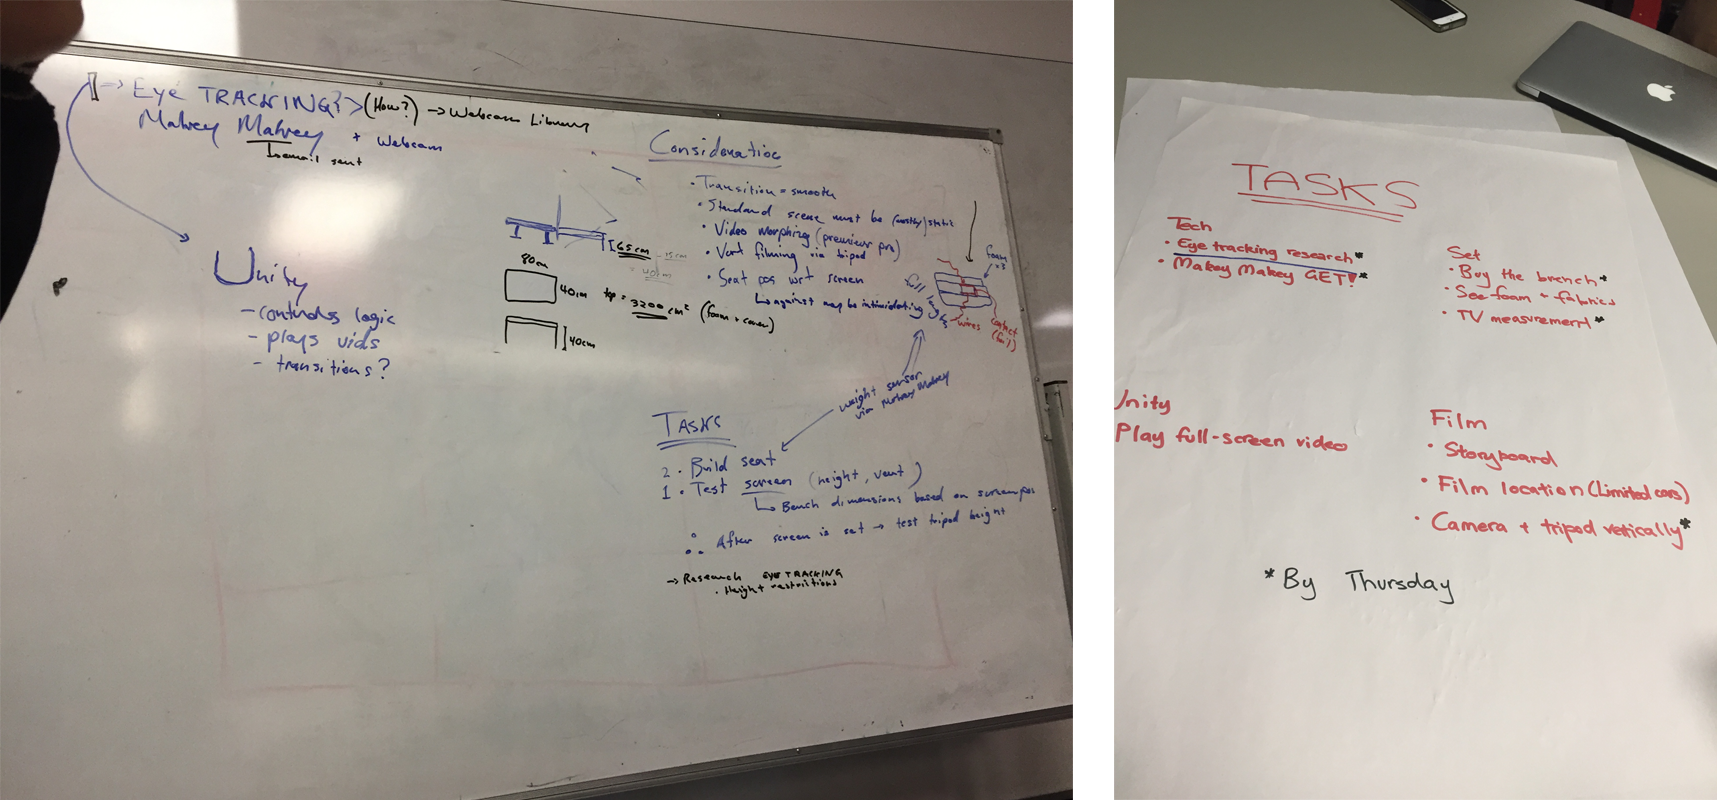 → Eye TRACKING?> (How?) → Webcam Library
Makey Makey + Webcam
email sent
Unity
- controls logic
- plays vids
- transitions?
65cm
15cm
40cm
80cm
40cm
top = 3200cm² (foam + cover)
40cm
Consideration
• Transition = smooth
• Standard scene must be (mostly) static
• Video morphing (premieur pro)
• Vert filming via tripod
• Seat pos wrt screen
↳ against may be intimidating
foam
x3
wires
contact
(foil)
weight sensor
via Makey Makey
TASKS
2 • Build seat
1 • Test screen (height, vert)
↳ Bench dimensions based on screen pos
∴ After screen is set → test tripod height
→ Research EYE TRACKING
• Height restrictions
TASKS
Tech
• Eye tracking research*
• Makey Makey GET!*
Set
• Buy the brench*
• See foam + fabrics
• TV measurement*
Unity
Play full-screen video
Film
• Storyboard
• Film location (Limited cars)
• Camera + tripod vertically*
*By Thursday